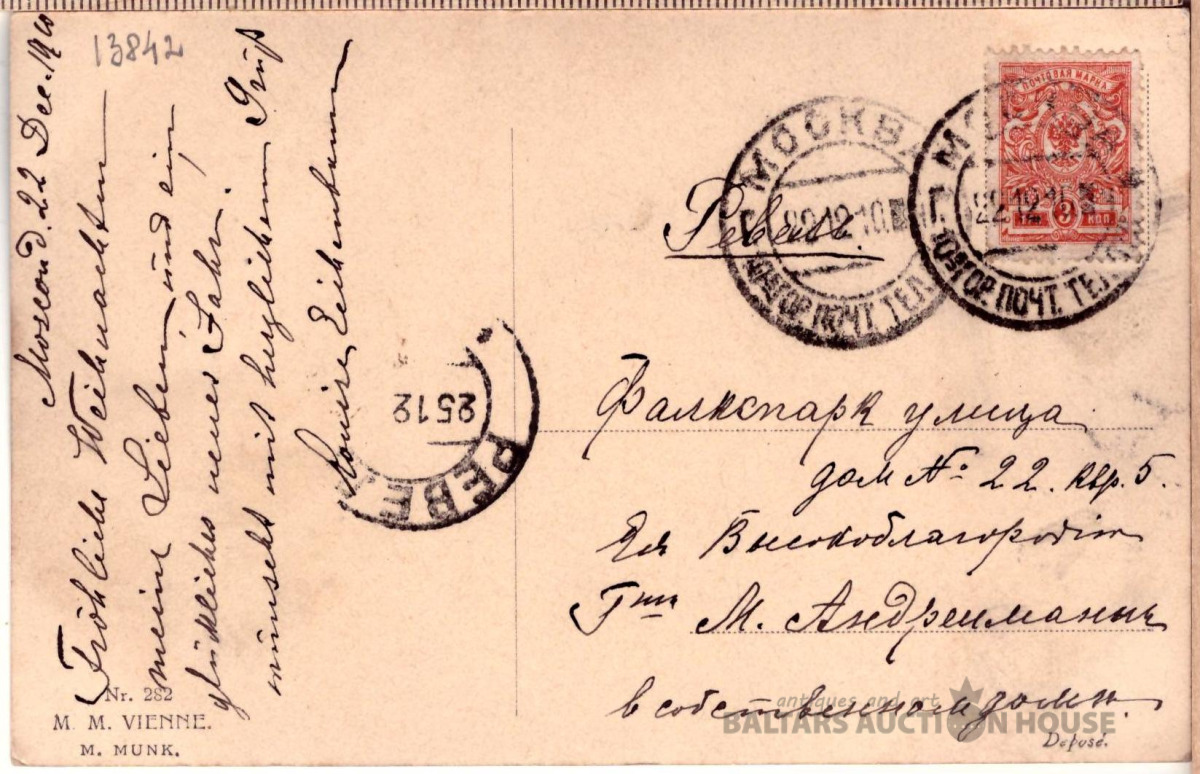 13842
Moscou d. 22 Dec. 1910
Fröhliche Weihnachten
meine Lieben und ein
glückliches neues Jahr,
wünscht mit herzlichem Gruß
Louise Eichenbaum
Nr. 282
M. M. VIENNE.
M. MUNK.
25 12
РЕВЕ
МОСКВА
22.12.10
Г. ПОЧТ. ТЕЛ
МОС
22.12.10
Г. ПОЧТ. ТЕЛ
ПОЧТОВАЯ МАРКА
3 КОП.
Ревель.
Фалкспарк улица
дом № 22. квр. 5.
Ея Высокоблагородію
Гжѣ М. Андреиманъ
в собственном домѣ.
antiques and art
BALTARS AUCTION HOUSE
Deposé.